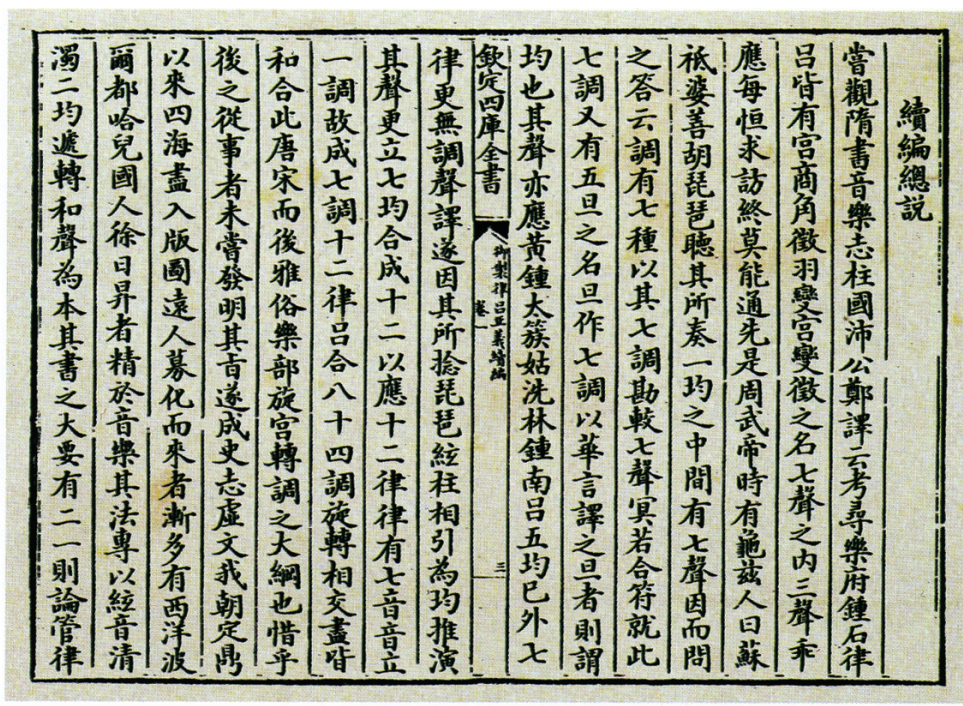 續編總説
嘗觀隋書音樂志柱國沛公鄭譯云考尋樂府鍾石律
吕皆有宫商角徵羽變宫變徵之名七聲之内三聲乖
應每恒求訪終莫能通先是周武帝時有龜兹人曰蘇
祗婆善胡琵琶聽其所奏一均之中間有七聲因而問
之答云調有七種以其七調勘較七聲冥若合符就此
七調又有五旦之名旦作七調以華言譯之旦者則謂
均也其聲亦應黄鍾太簇姑洗林鍾南吕五均已外七
欽定四庫全書
御製律吕正義續編
卷一
三
律更無調聲譯遂因其所捻琵琶絃柱相引為均推演
其聲更立七均合成十二以應十二律律有七音音立
一調故成七調十二律吕合八十四調旋轉相交盡皆
和合此唐宋而後雅俗樂部旋宫轉調之大綱也惜乎
後之從事者未嘗發明其旨遂成史志虚文我朝定鼎
以來四海盡入版圖遠人慕化而來者漸多有西洋波
爾都哈兒國人徐日昇者精於音樂其法專以絃音清
濁二均遞轉和聲為本其書之大要有二一則論管律